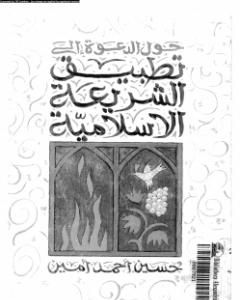 حول الدعوة إلى
تطبيق
الشريعة
الإسلامية
حسين أحمد أمين